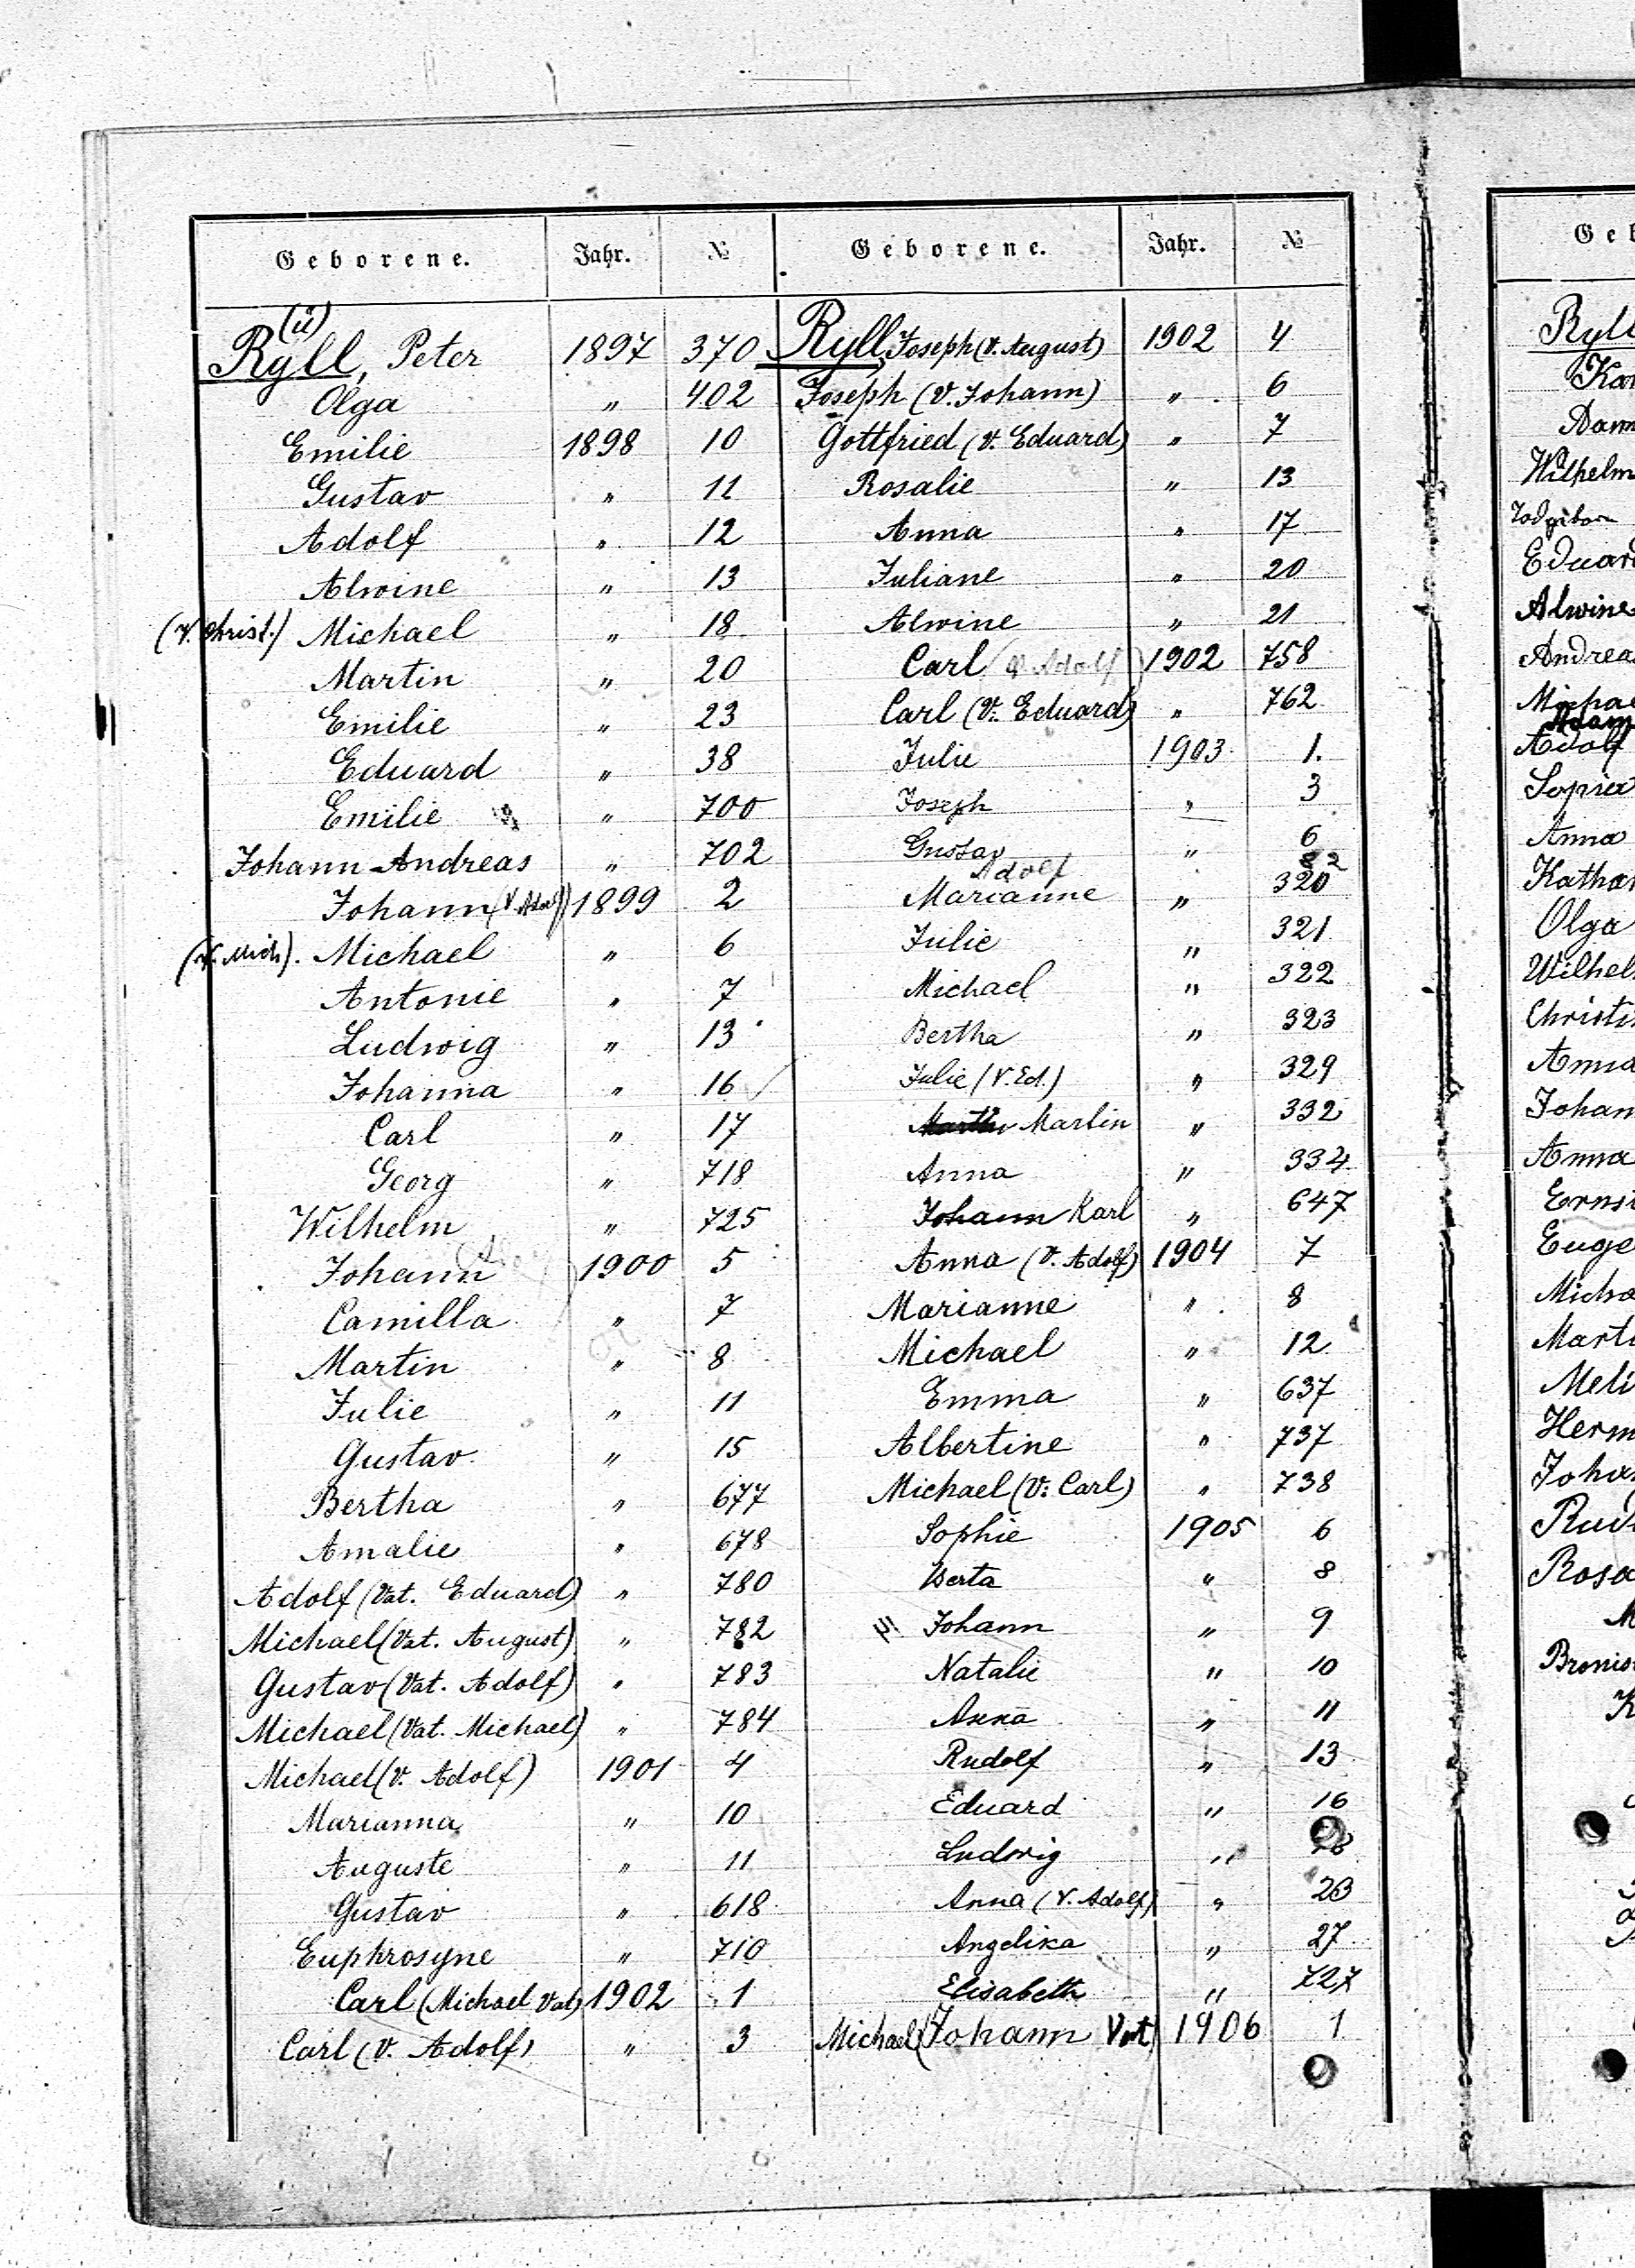 Geborene. Jahr. №
(ü)
Ryll, Peter 1897 370
Olga " 402
Emilie 1898 10
Gustav " 11
Adolf " 12
Alwine " 13
(V. Christ.) Michael " 18
Martin " 20
Emilie " 23
Eduard " 38
Emilie " 700
Johann Andreas " 702
Johann (V. Adolf) 1899 2
(V. Mich). Michael " 6
Antonie " 7
Ludwig " 13
Johanna " 16
Carl " 17
Georg " 718
Wilhelm " 725
Johann 1900 5
Camilla " 7
Martin " 8
Julie " 11
Gustav " 15
Bertha " 677
Amalie " 678
Adolf (Vat. Eduard) " 780
Michael (Vat. August) " 782
Gustav (Vat. Adolf) " 783
Michael (Vat. Michael) " 784
Michael (V. Adolf) 1901 4
Marianna " 10
Auguste " 11
Gustav " 618
Euphrosyne " 710
Carl (Michael Vat) 1902 1
Carl (V. Adolf) " 3
Geborene. Jahr. №
Ryll, Joseph (V. August) 1902 4
Joseph (V. Johann) " 6
Gottfried (V. Eduard) " 7
Rosalie " 13
Anna " 17
Juliane " 20
Alwine " 21
Carl (V. Adolf) 1902 758
Carl (V. Eduard) " 762
Julie 1903 1.
Joseph " 3
Gustav " 6
Adolf 82
Marianne " 320
Julie " 321
Michael " 322
Bertha " 323
Julie (V. Ed.) " 329
Martin " 332
Anna " 334
Johann Karl " 647
Anna (V. Adolf) 1904 7
Marianne " 8
Michael " 12
Emma " 637
Albertine " 737
Michael (V. Carl) " 738
Sophie 1905 6
Berta " 8
Johann " 9
Natalie " 10
Anna " 11
Rudolf " 13
Eduard " 16
Ludwig "
Anna (V. Adolf) " 23
Angelika " 27
Elisabeth " 727
Michael (Johann Vat) 1906 1
Geb
Ryll
Kar
Wilhelm
Eduard
Alwine
Andreas
Michae
Adam
Adolf
Anna
Kathar
Olga
Wilhel
Christ
Anna
Johan
Anna
Ernst
Euge
Micha
Mart
Meli
Herm
Joha
Rud
Rosa
M
Bronis
K